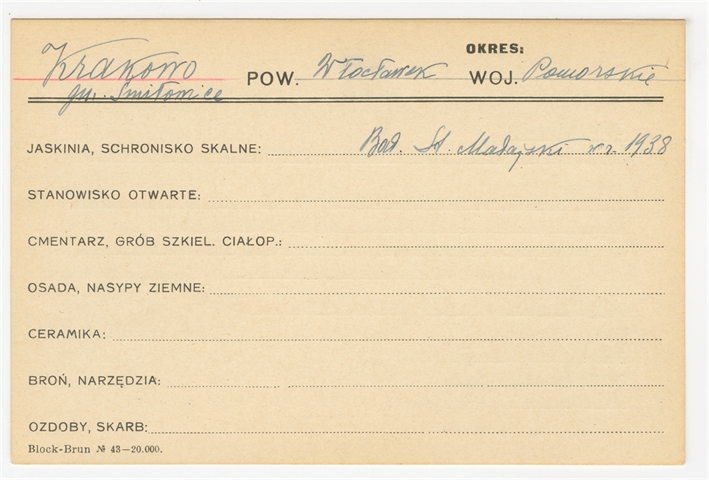 OKRES:
Krakowo POW. Włocławek WOJ. Pomorskie
gm. Śmiłowice
JASKINIA, SCHRONISKO SKALNE: Bad. St. Madajski w r. 1938
STANOWISKO OTWARTE:
CMENTARZ, GRÓB SZKIEL. CIAŁOP.:
OSADA, NASYPY ZIEMNE:
CERAMIKA:
BROŃ, NARZĘDZIA:
OZDOBY, SKARB:
Block-Brun № 43—20.000.